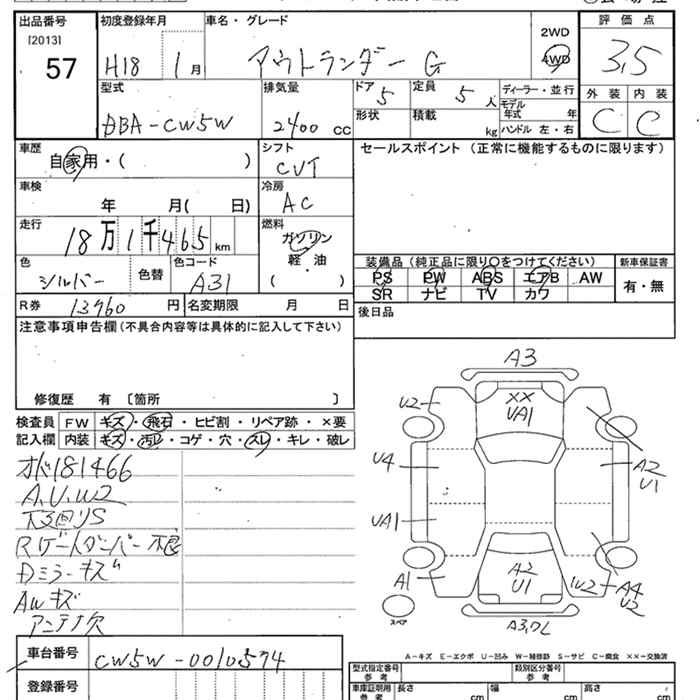 出品番号
[2013]
57
初度登録年月
H18 1月
車名・グレード
アウトランダー G
2WD
4WD
評価点
3,5
外装 内装
C C
型式
DBA-CW5W
排気量
2400 CC
ドア
5
定員
5 人
形状
積載
kg
ディーラー・並行
モデル
年式 年
ハンドル 左・右
車歴
自家用・( )
シフト
CVT
セールスポイント (正常に機能するものに限ります)
車検
年 月( 日)
冷房
AC
走行
18万1千465km
燃料
ガソリン
軽・油
( )
色
シルバー
色替
色コード
A31
装備品 (純正品に限り○をつけてください)
PS PW ABS エアB AW
SR ナビ TV カワ
新車保証書
有・無
R券 13960 円
名変期限 月 日
後日品
注意事項申告欄(不具合内容等は具体的に記入して下さい)
修復歴 有 〔箇所 〕
検査員 FW キズ・飛石・ヒビ割・リペア跡・×要
記入欄 内装 キズ・汚レ・コゲ・穴・スレ・キレ・破レ
オド181466
A,U,W2
下回りS
Rゲートダンパー不良
Dミラーキズ
AWキズ
アンテナ欠
A3
U2
XX
UA1
U4
A2
U1
UA1
A1
A2
U1
W2
A4
U2
スペア
A3,ワレ
A-キズ E-エクボ U-凹み W-補修跡 S-サビ C-腐食 ××-交換済
車台番号
CW5W-0010574
登録番号
型式指定番号
参考
類別区分番号
参考
車庫証明用
参考
長さ cm
幅 cm
高さ cm